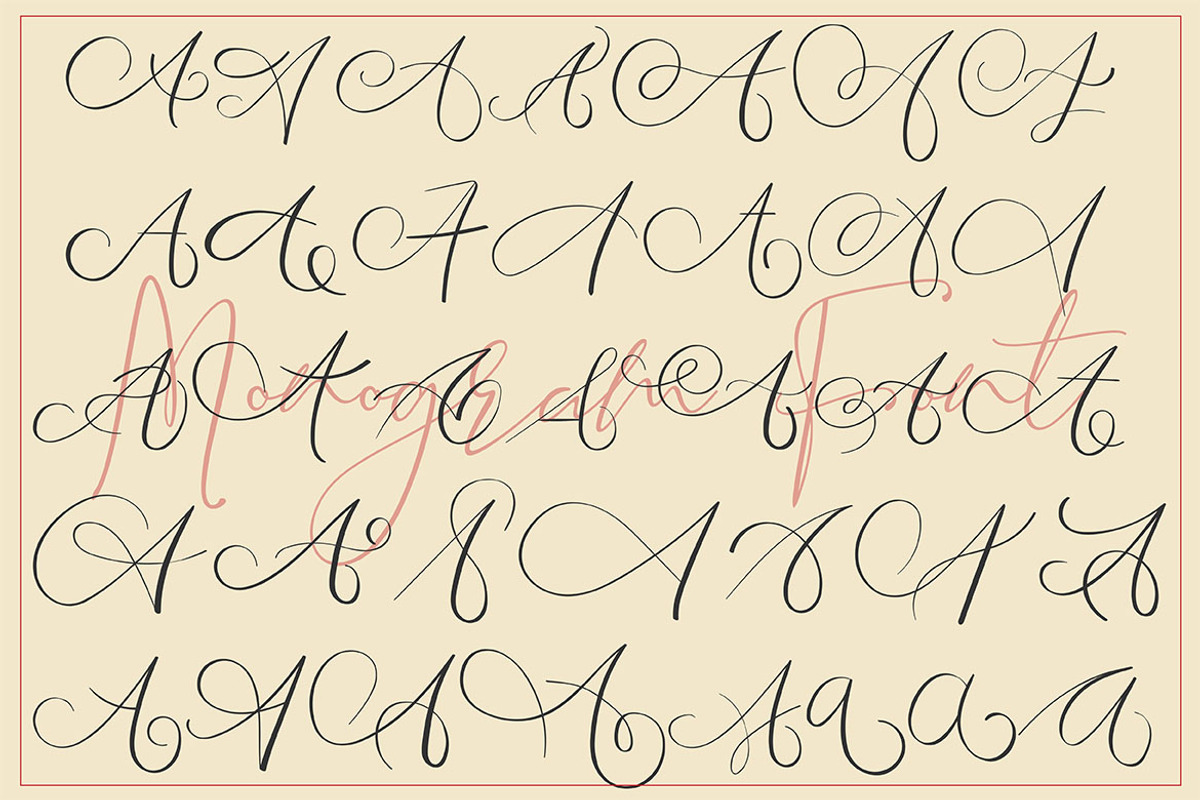 A A A A A A A
A A A A A A A
Monogram Font
A A A A A A A
A A A A A A A
A A A A A a a a